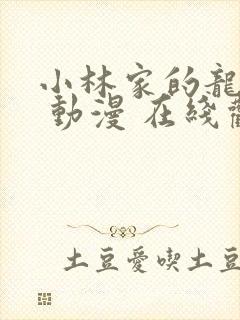 小林家的龍
動漫 在綫
土豆愛喫土豆